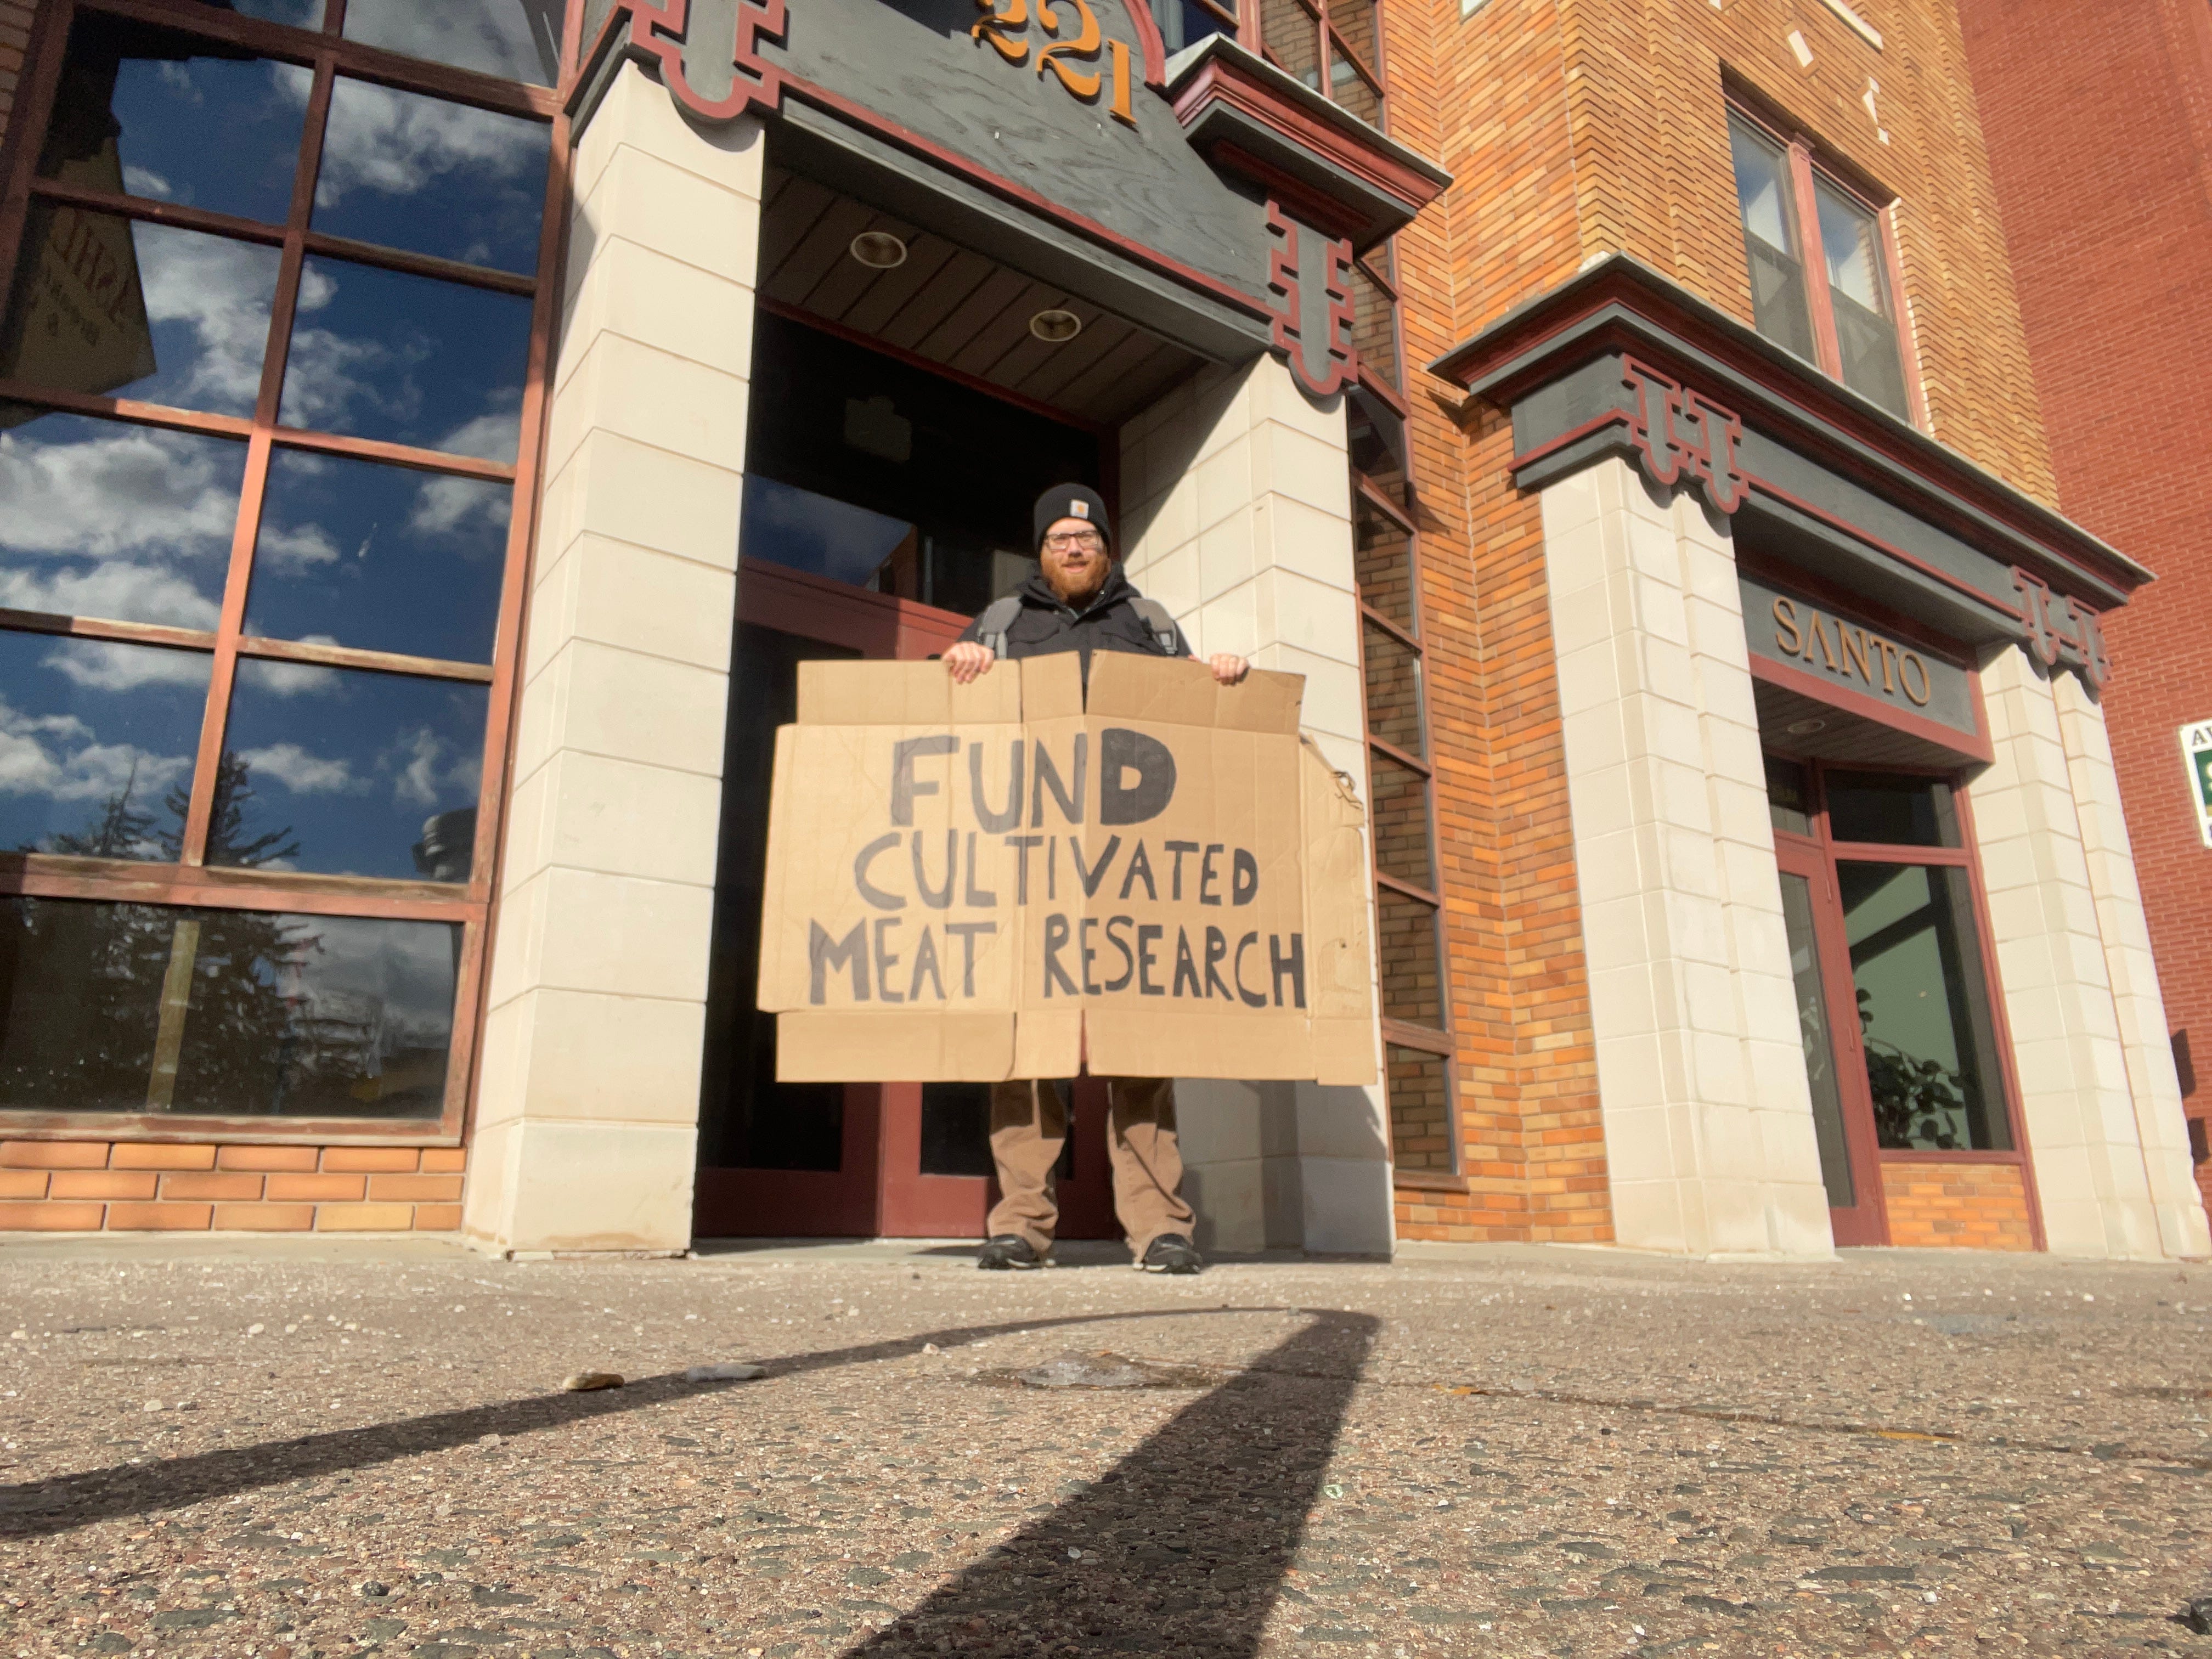 221
SANTO
FUND
CULTIVATED
MEAT RESEARCH